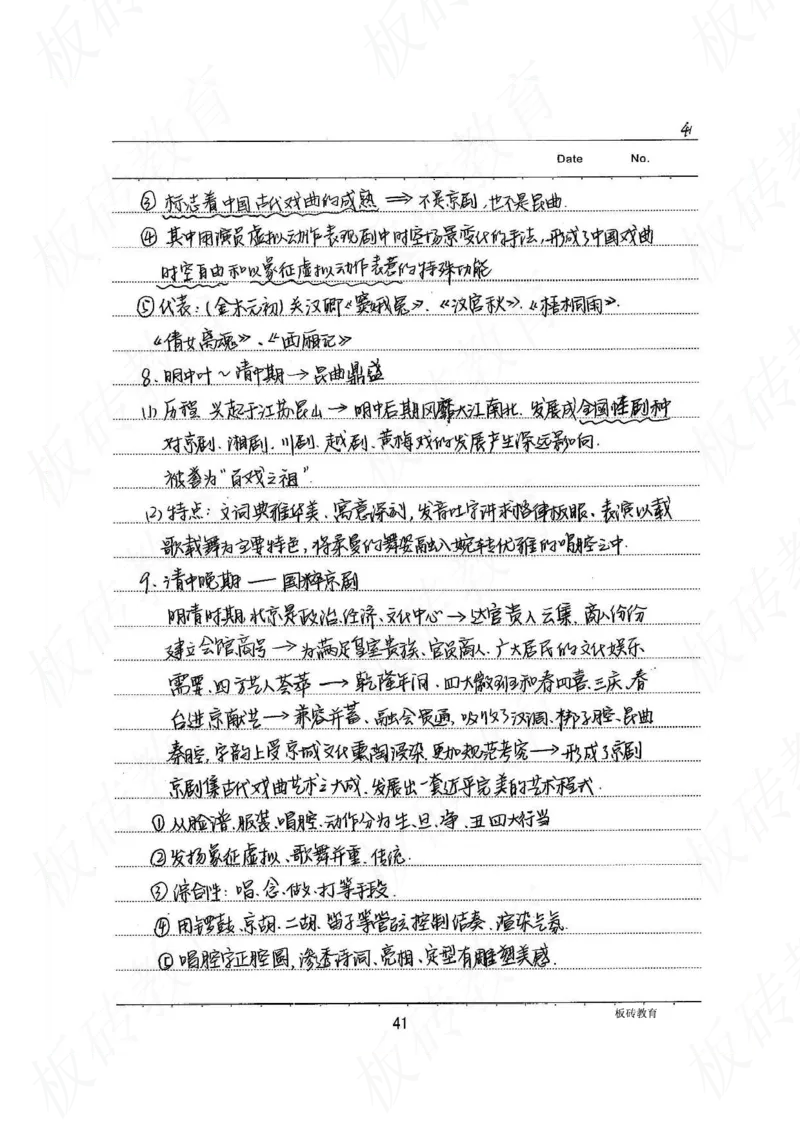 41
Date No.
③ 标志着中国古代戏曲的成熟 ⇒ 不是京剧,也不是昆曲.
④ 其中用演员虚拟动作表现剧中时空场景变化的手法,形成了中国戏曲
时空自由和以象征虚拟动作表意的特殊功能
⑤ 代表:(金末元初)关汉卿《窦娥冤》、《汉宫秋》、《梧桐雨》、
《倩女离魂》、《西厢记》
8、明中叶~清中期→昆曲鼎盛
(1) 历程 兴起于江苏昆山→明中后期风靡大江南北.发展成全国性剧种
对京剧、湘剧、川剧、越剧、黄梅戏的发展产生深远影响.
被誉为“百戏之祖”.
(2) 特点:文词典雅华美、寓意深刻,发音吐字讲求格律板眼、表演以载
歌载舞为主要特色,将柔曼的舞姿融入婉转优雅的唱腔之中.
9、清中晚期——国粹京剧
明清时期,北京是政治、经济、文化中心→达官贵人云集,商人纷纷
建立会馆商号→为满足皇室贵族、官员商人、广大居民的文化娱乐
需要,四方艺人荟萃→乾隆年间,四大徽班和春四喜、三庆、春
台进京献艺→兼容并蓄、融会贯通,吸收了汉调、梆子腔、昆曲
秦腔,字韵上受京城文化熏陶浸染,更加规范考究→形成了京剧
京剧集古代戏曲艺术之大成,发展出一套近乎完美的艺术程式.
① 从脸谱、服装、唱腔、动作分为生、旦、净、丑四大行当
② 发扬象征虚拟、歌舞并重、传统.
③ 综合性:唱、念、做、打等手段.
④ 用锣鼓、京胡、二胡、笛子等管弦控制结奏、渲染气氛.
⑤ 唱腔字正腔圆,渗透诗词、亮相、定型有雕塑美感.
41
板砖教育